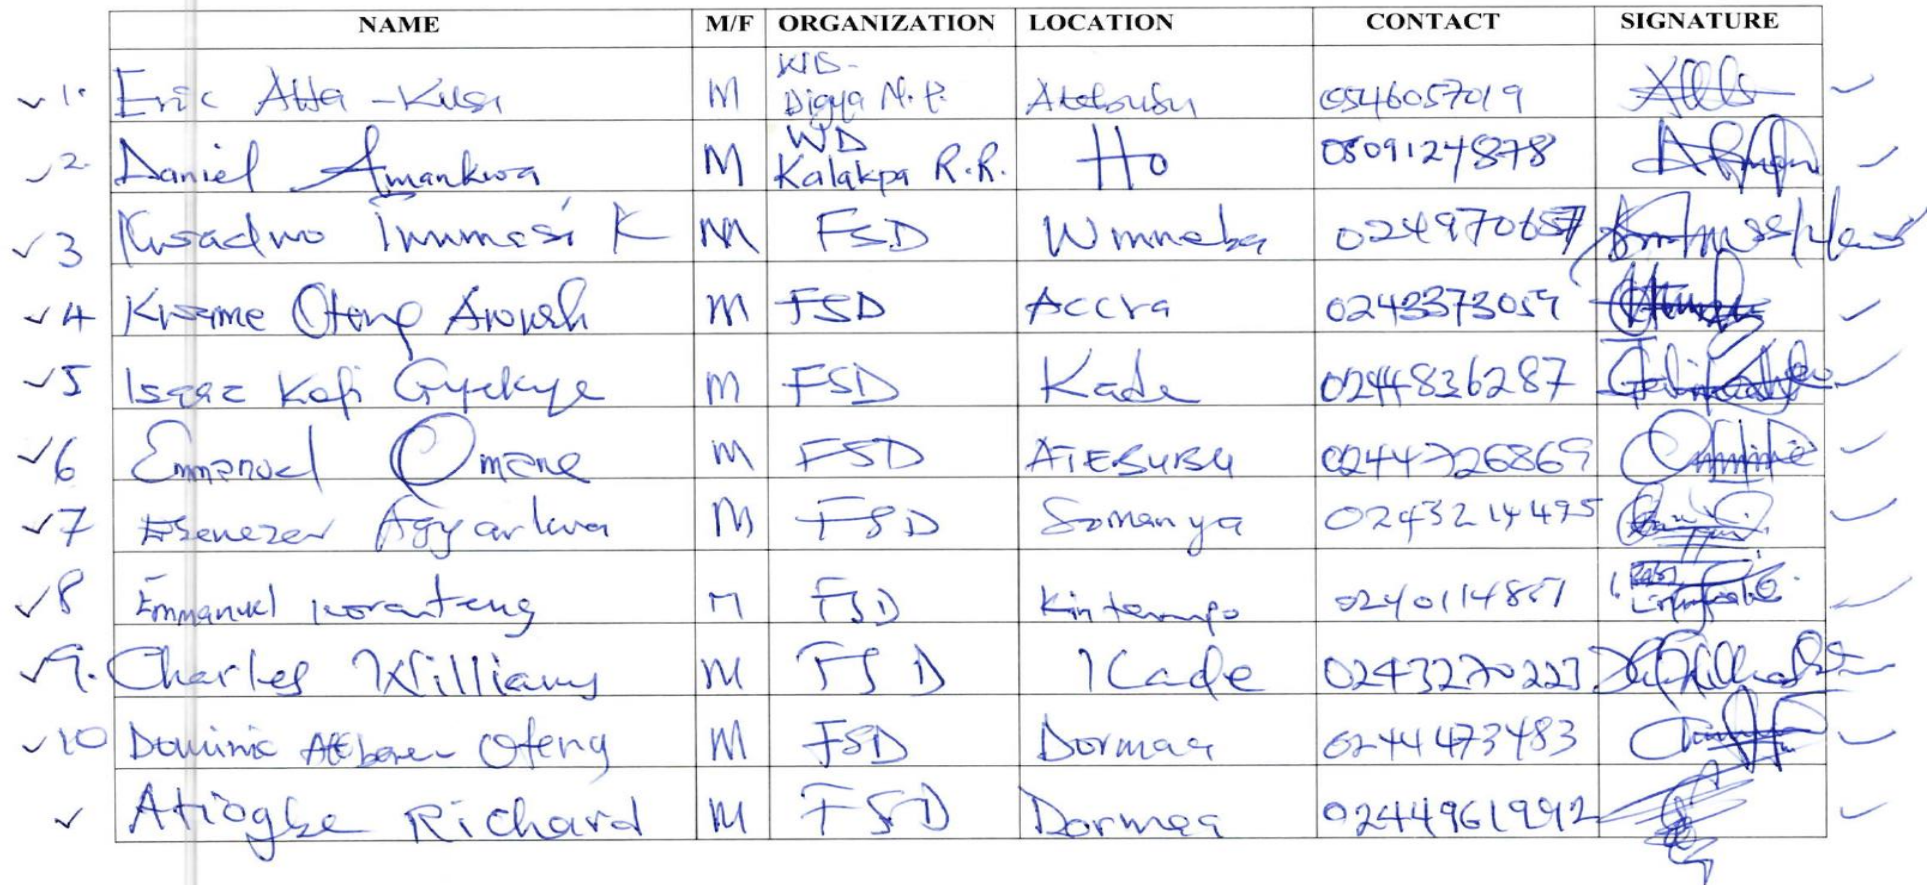 NAME M/F ORGANIZATION LOCATION CONTACT SIGNATURE
✓ 1. Eric Atta-Kusi M WD- Digya N.P. Atebubu 0546057019 ✓
✓ 2. Daniel Amankwa M WD Kalakpa R.R. Ho ✓
✓ 3 K M FSD Winneba 024970657 ✓
✓ 4 Kwame Oteng M FSD Accra 0243373059 ✓
✓ 5 Isaac Kofi Gyekye M FSD Kade 0244836287 ✓
✓ 6 Emmanuel Omane M FSD ATEBUBU 0244726869 ✓
✓ 7 Ebenezer Agyarkwa M FSD Somanya 0243214495 ✓
✓ 8 Emmanuel Koranteng M FSD Kintampo ✓
✓ 9. Charles Williams M FSD Kade 0243270223
✓ 10 Dominic Oteng M FSD Dormaa 0244473483 ✓
✓ Atiogbe Richard M FSD Dormaa 0244961992 ✓